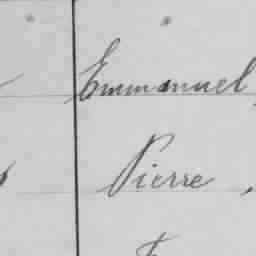 Emmanuel,
Pierre,